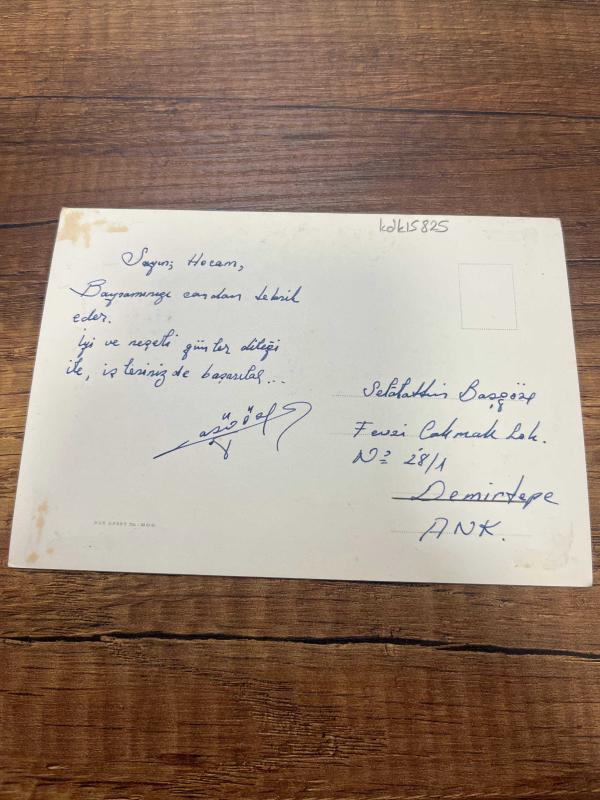 kdk15825
Sayın; Hocam,
Bayramınızı candan tebrik
eder.
İyi ve neşeli günler dileği
ile, işlerinizde başarılar...
Selâhattin Başgöze
Fevzi Çakmak Sok.
No 28/1
Demirtepe
ANK.